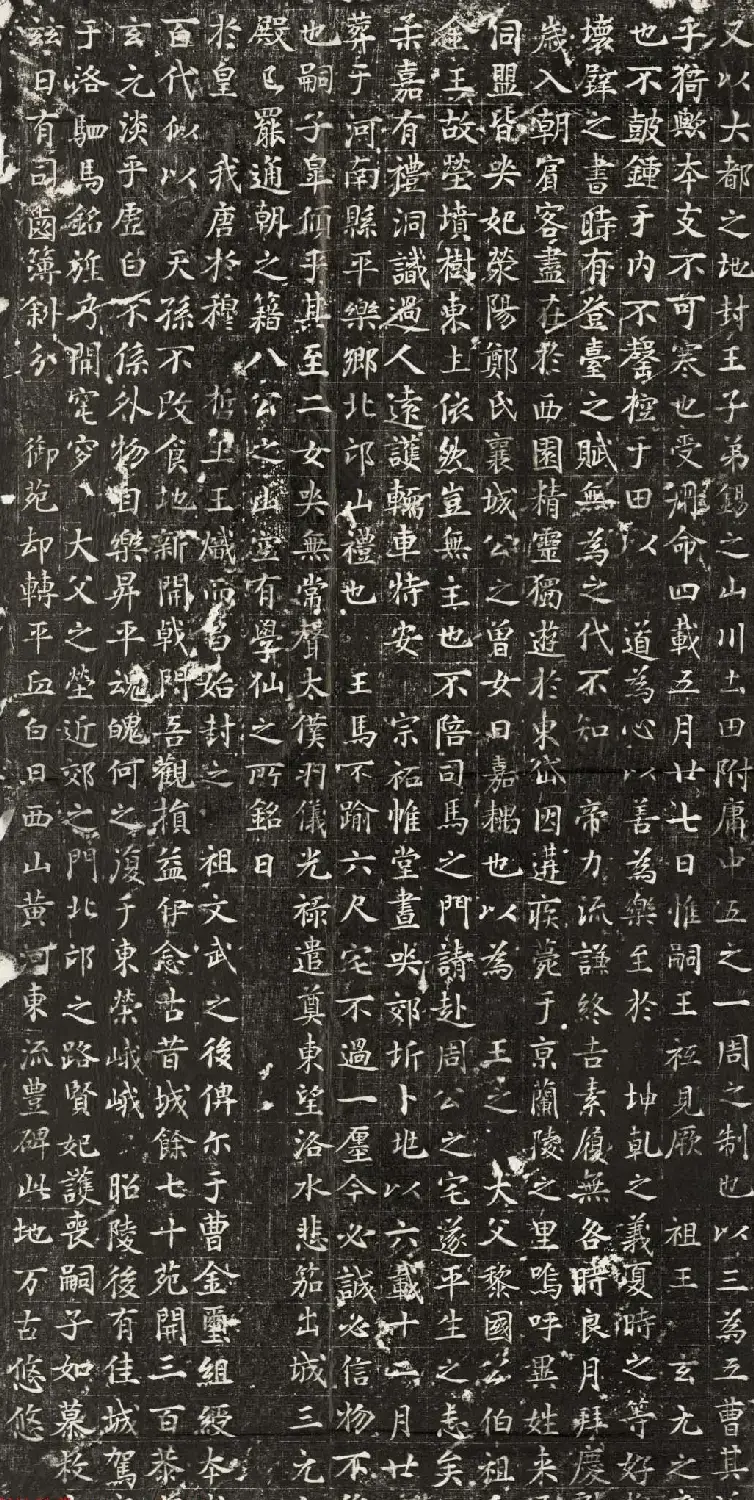 又以大都之地封王子弟錫之山川土田附庸中五之一周之制也以三為五曹其
乎猗歟本支不可寒也受冊命四載五月廿七日惟嗣王祗見厥 祖王 玄元之
也不鼓鍾于內不罄樽于田以 道為心以善為樂至於 坤乾之義夏時之等好
壞壁之書時有登臺之賦無為之代不知 帝力流謙終吉素履無咎時良月拜慶
歲入朝賓客盡在於西園精靈獨遊於東岱因遘疾薨于京蘭陵之里嗚呼異姓來
同盟皆哭妃滎陽鄭氏襄城公之曾女曰嘉耦也以為 王之 大父黎國公伯祖
金王故塋墳樹東上依然豈無主也不陪司馬之門請赴周公之宅遂平生之志矣
柔嘉有禮洞識過人遠護輀車特安 宗祐惟堂晝哭郊圻卜兆以六載十二月廿
葬于河南縣平樂鄉北邙山禮也 王馬不踰六尺宅不過一廛今必誠必信物不
也嗣子皐傾乎其至二女哭無常聲太僕羽儀光祿遣奠東望洛水悲笳出城三元
殿已罷通朝之籍八公之山空有學仙之所銘曰
於皇 我唐於穆 哲王王熾而昌始封之 祖文武之後俾尓于曹金璽組綬本
百代似以 天孫不改食地新開戟門吾觀損益伊念古昔城餘七十苑開三百恭
玄元淡乎虛白不係外物自樂昇平魂魄何之復于東榮峨峨 昭陵後有佳城駕
于洛駟馬銘旌乃開窀穸 大父之塋近郊之門北邙之路賢妃護喪嗣子如慕敕
茲日有司鹵簿斜分 御苑却轉平丘白日西山黃河東流豊碑此地万古悠悠